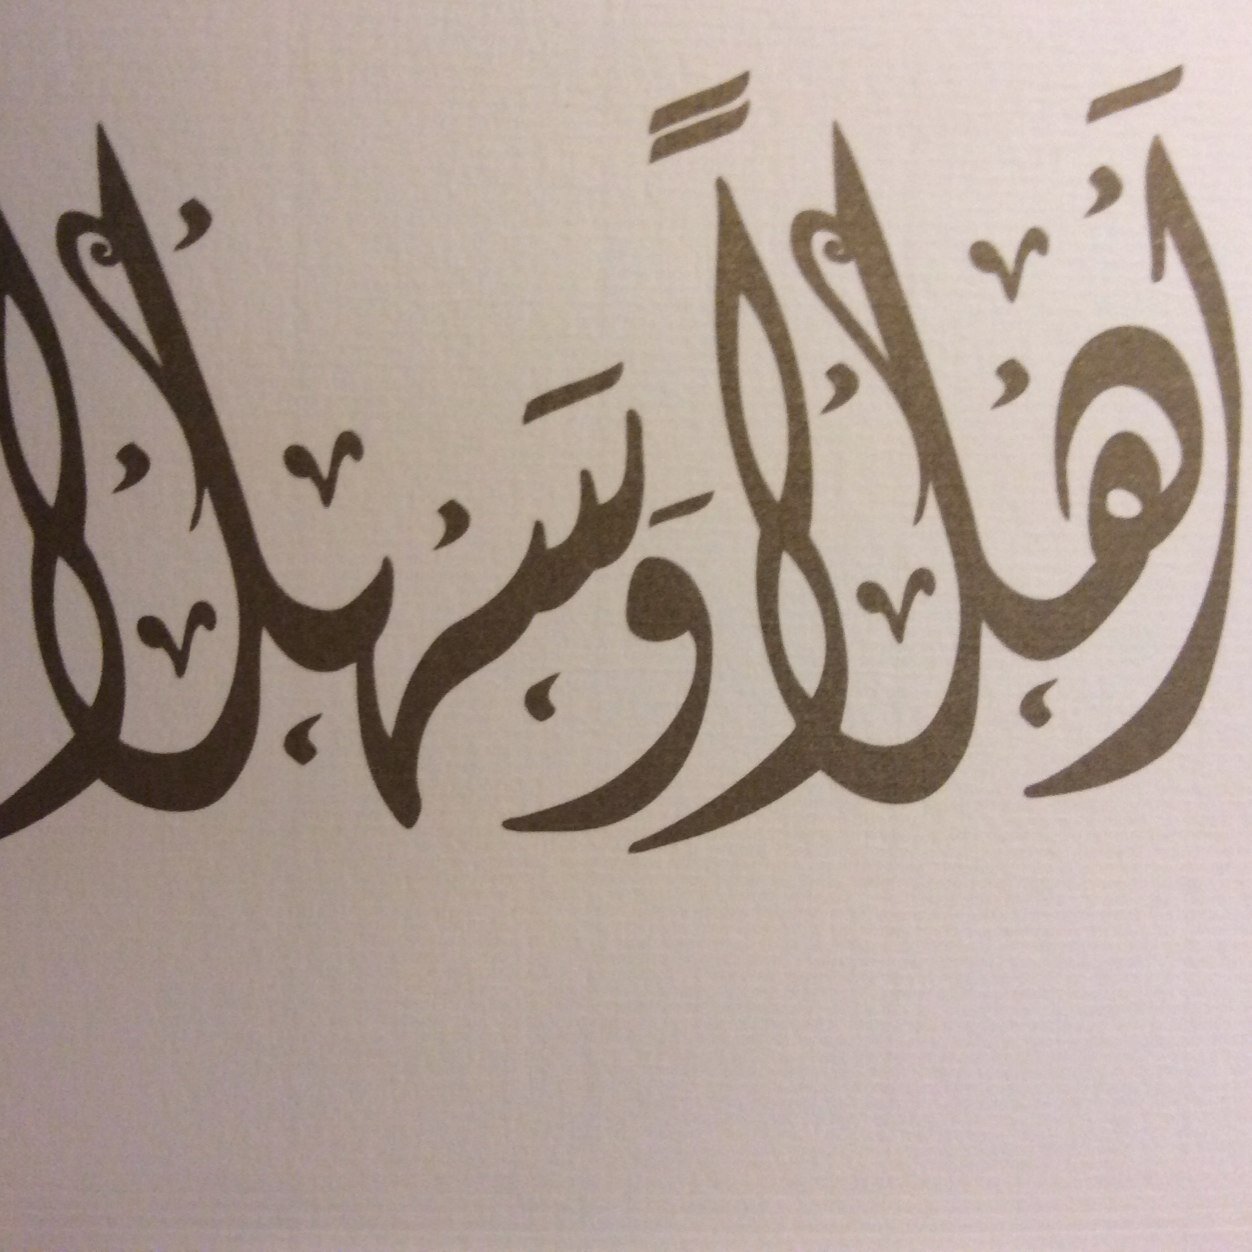 أَهلاً وَسَهلا